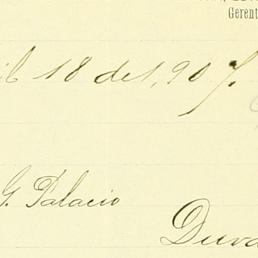 Gerent
il 18 de 1,907.
G. Palacio
Dura